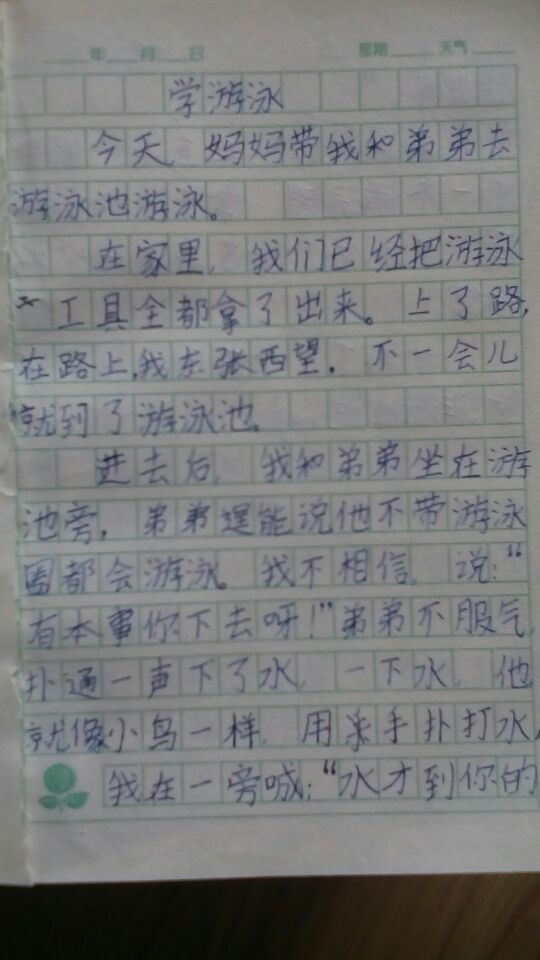 年 月 日 星期 天气
学游泳
今天,妈妈带我和弟弟去
游泳池游泳。
在家里,我们已经把游泳
工具全都拿了出来。上了路,
在路上,我东张西望,不一会儿
就到了游泳池。
进去后,我和弟弟坐在游
池旁,弟弟逞能说他不带游泳
圈都会游泳。我不相信,说:“
有本事你下去呀!”弟弟不服气,
扑通一声下了水,一下水,他
就像小鸟一样,用手扑打水,
我在一旁喊:“水才到你的